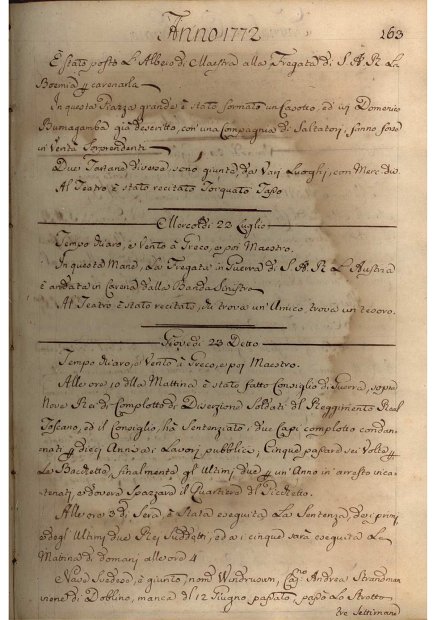 Anno 1772
163
È stato posto L'Albero di Maestra alla Fregata di S. A. R. La
Boemia p carenarla
In questa Piazza grande è stato formato un Casotto, ed ivi Domenico
Bumagamba già descritto, con una Compagnia di Saltatori, fanno forze
in Vento Sorprendenti
Due Tartane diverse sono giunte, da Varj Luoghi, con Merc: div:
Al Teatro è stato recitato Torquato Tasso
Mercoldì 22 Luglio
Tempo chiaro, e Vento à Greco, e poi Maestro.
In questa Mane, La Fregata in Guerra di S. A. R. L'Austria
è andata in Carena dalla Banda Sinistra
Al Teatro è stato recitato, chi trova un'Amico, trova un tesoro.
Giovedì 23 Detto
Tempo chiaro, e Vento à Greco, e poi Maestro.
Alle ore 10 della Mattina è stato fatto Consiglio di Guerra, sopra
Nove Rei di Complotto di Diserzione Soldati del Reggimento Real
Toscano, ed il Consiglio, hà Sentenziato i due Capi complotto condan
nati p dieci Anni a i Lavori pubblici; Cinque passare sei Volte p
Le Bacchette, finalmente gli Ultimi due p un'Anno in arresto inca
tenati, e dovera Spazzare il Quartiere di Picchetto.
Alle ore 3 di Sera, è Stata eseguita La Sentenza, de i primi
e degl'Ultimi due Rei Suddetti, ed a i cinque sarà eseguita La
Matina di domani alle ore 4
Nave Svedese, è giunta, nom: Windruwn, Cap:no Andrea Strandman
viene di Dublino, manca di 12 Giugno passato, passò Lo Stretto
tre Settimane